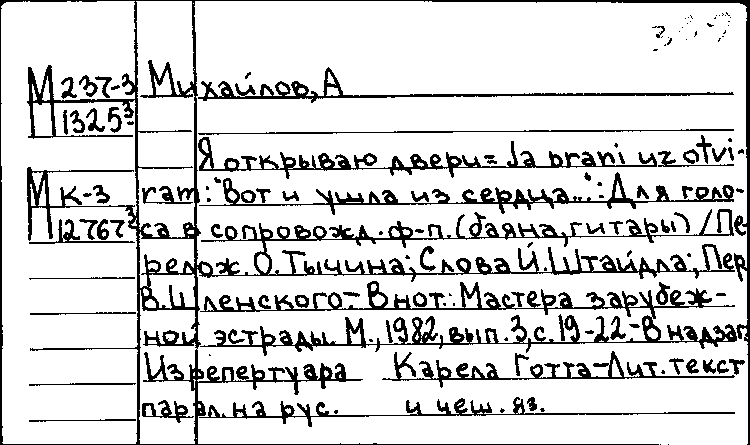 М 237-3 Михайлов, А
1325³
Я открываю двери = Ja brani uz otvi-
М к-3 ram: "Вот и ушла из сердца...": Для голо-
12767³ са в сопровожд. ф-п. (баяна, гитары) / Пе
релож. О. Тычина; Слова Й. Штайдла; Пер
В. Шленского.- В нот.: Мастера зарубеж-
ной эстрады. М., 1982, вып. 3, с. 19-22.- В надзаг
Из репертуара Карела Готта-Лит. текст
парал. на рус. и чеш. яз.